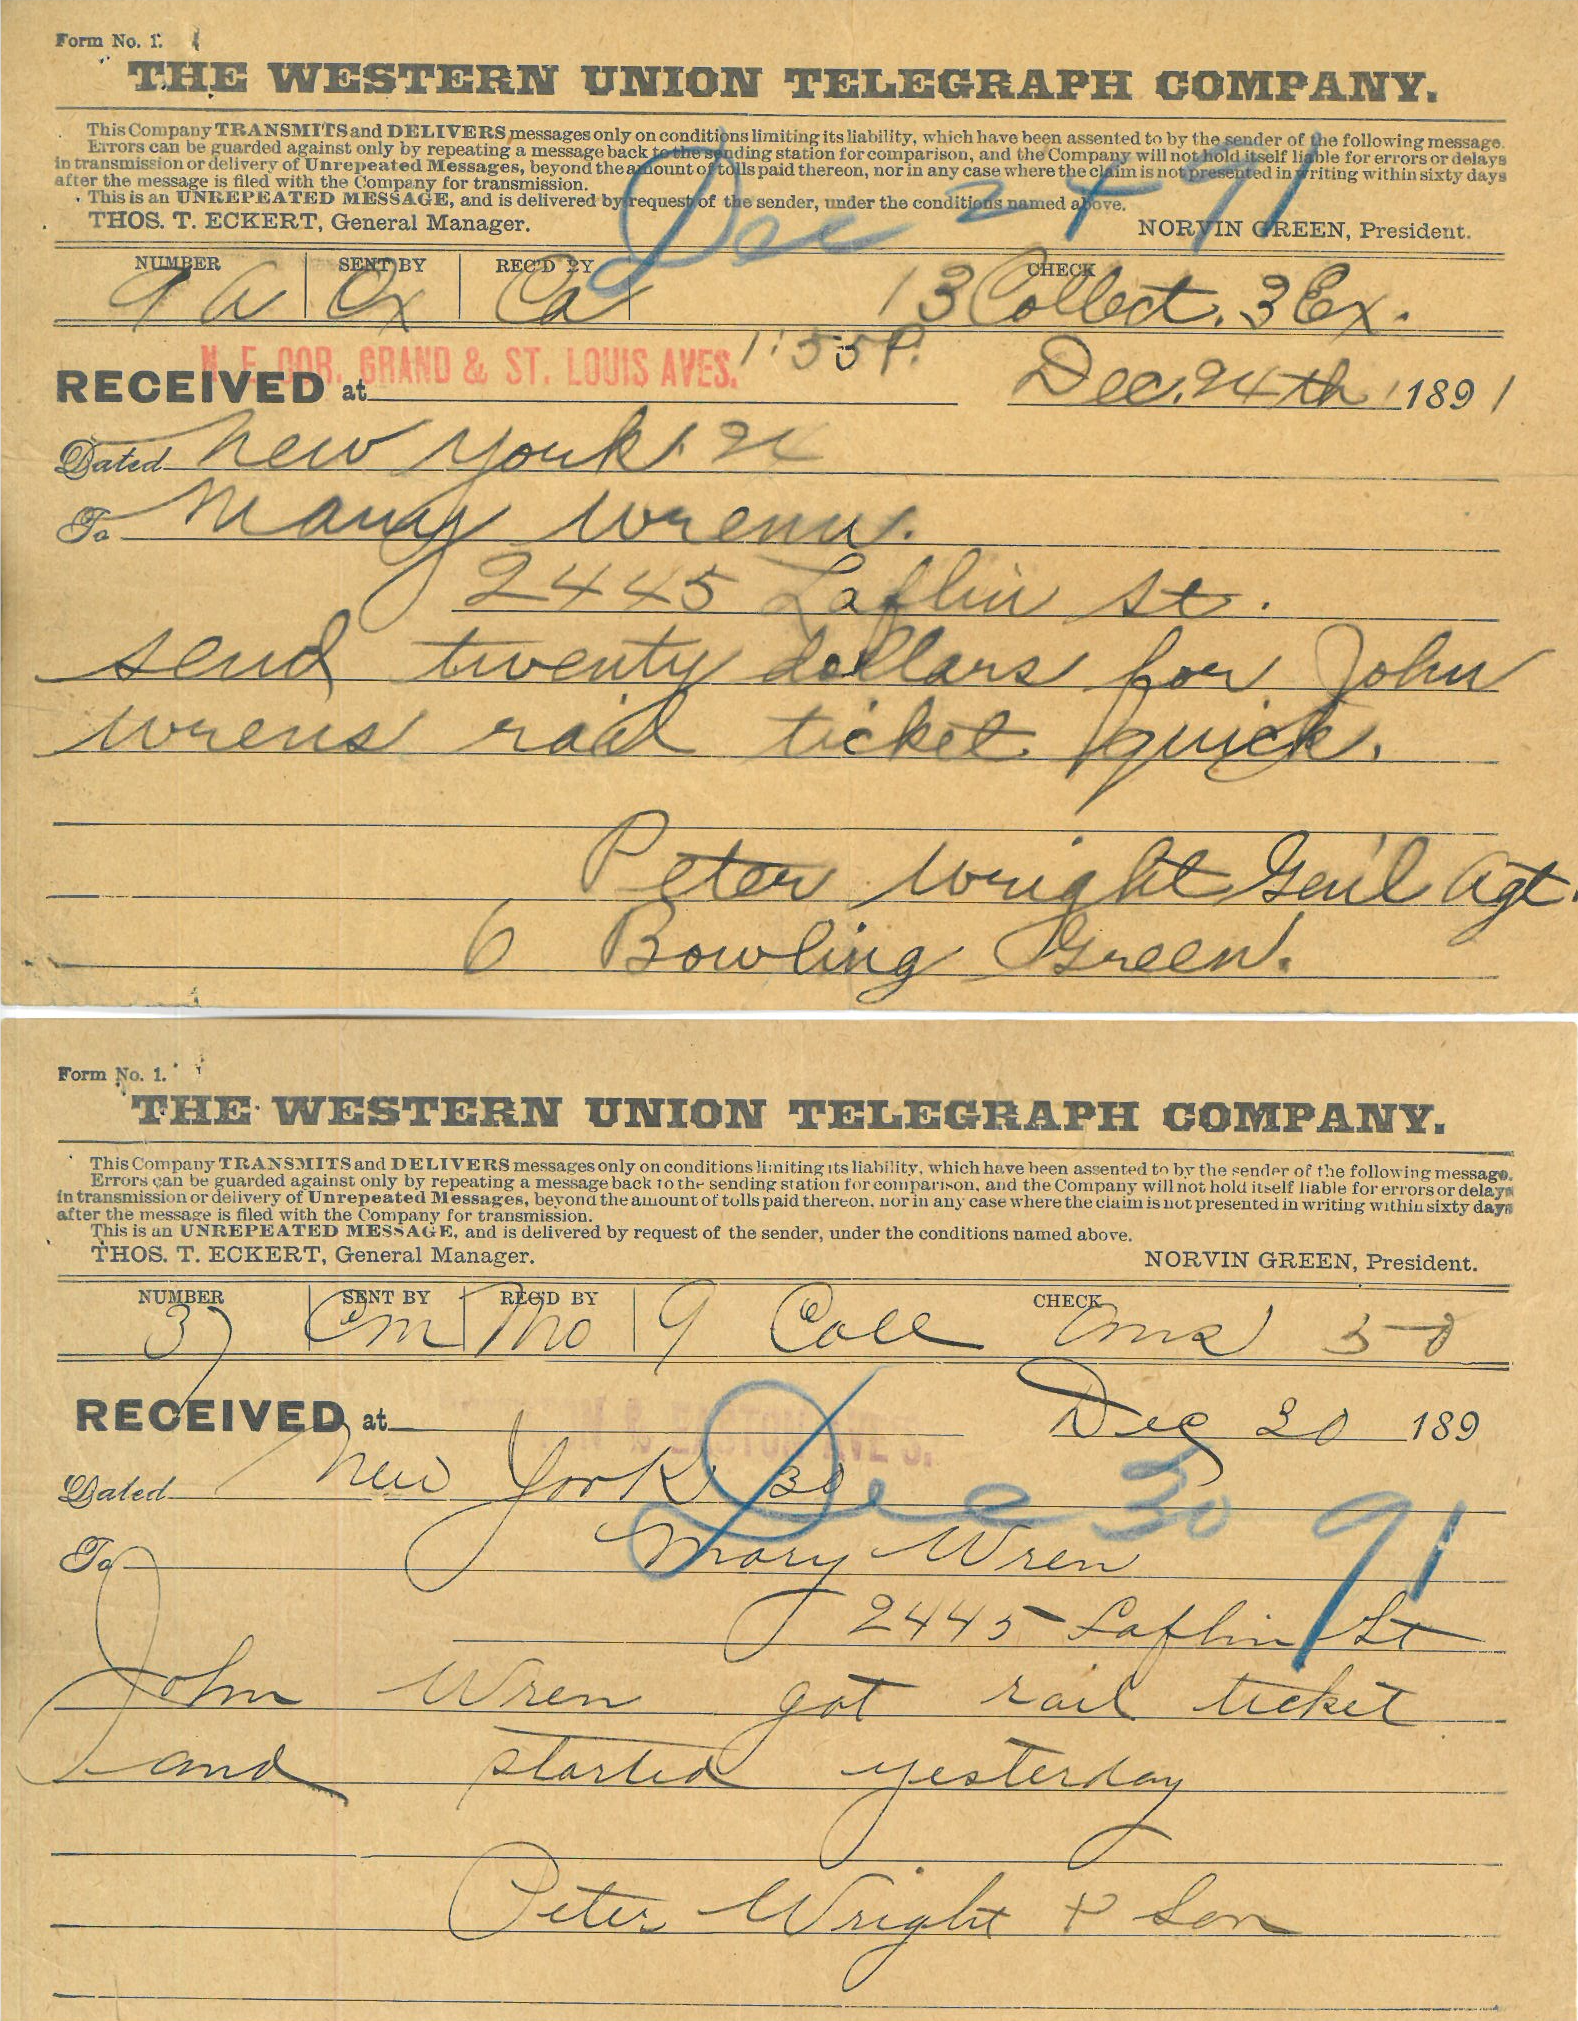 Form No. 1.
THE WESTERN UNION TELEGRAPH COMPANY.
This Company TRANSMITS and DELIVERS messages only on conditions limiting its liability, which have been assented to by the sender of the following message.
Errors can be guarded against only by repeating a message back to the sending station for comparison, and the Company will not hold itself liable for errors or delays
in transmission or delivery of Unrepeated Messages, beyond the amount of tolls paid thereon, nor in any case where the claim is not presented in writing within sixty days
after the message is filed with the Company for transmission.
This is an UNREPEATED MESSAGE, and is delivered by request of the sender, under the conditions named above.
THOS. T. ECKERT, General Manager. NORVIN GREEN, President.
Dec 24 91
NUMBER SENT BY REC'D BY CHECK
9 a Ox Ca 13 Collect. 3 Ex.
N. E. COR. GRAND & ST. LOUIS AVES. 1:55 P.
RECEIVED at Dec. 24th 1891
Dated New York 24
To Mary Wrenn.
2445 Laflin st.
send twenty dollars for John
wrens rail ticket quick.
Peter Wright Gen'l Agt.
6 Bowling Green.
Form No. 1.
THE WESTERN UNION TELEGRAPH COMPANY.
This Company TRANSMITS and DELIVERS messages only on conditions limiting its liability, which have been assented to by the sender of the following message.
Errors can be guarded against only by repeating a message back to the sending station for comparison, and the Company will not hold itself liable for errors or delays
in transmission or delivery of Unrepeated Messages, beyond the amount of tolls paid thereon, nor in any case where the claim is not presented in writing within sixty days
after the message is filed with the Company for transmission.
This is an UNREPEATED MESSAGE, and is delivered by request of the sender, under the conditions named above.
THOS. T. ECKERT, General Manager. NORVIN GREEN, President.
NUMBER SENT BY REC'D BY CHECK
37 Cm Mo 9 Coll
& EASTON AVE'S.
RECEIVED at Dec 30 189
Dated New York 30
Dec 30 91
To Mary Wren
2445 Laflin St
John Wren got rail ticket
and started yesterday
Peter Wright & Son